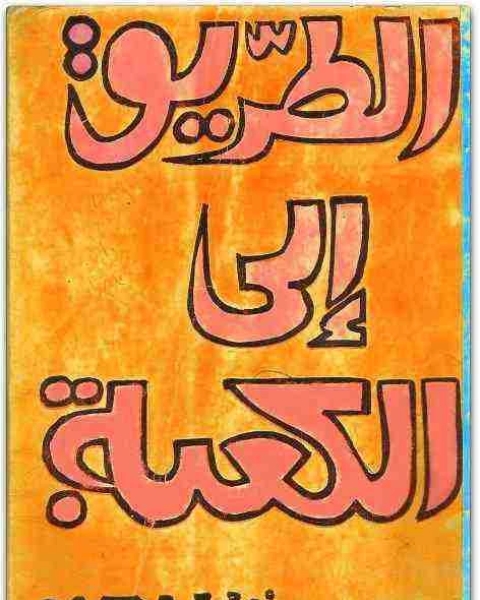 الطّريق
إلى
الكعبة